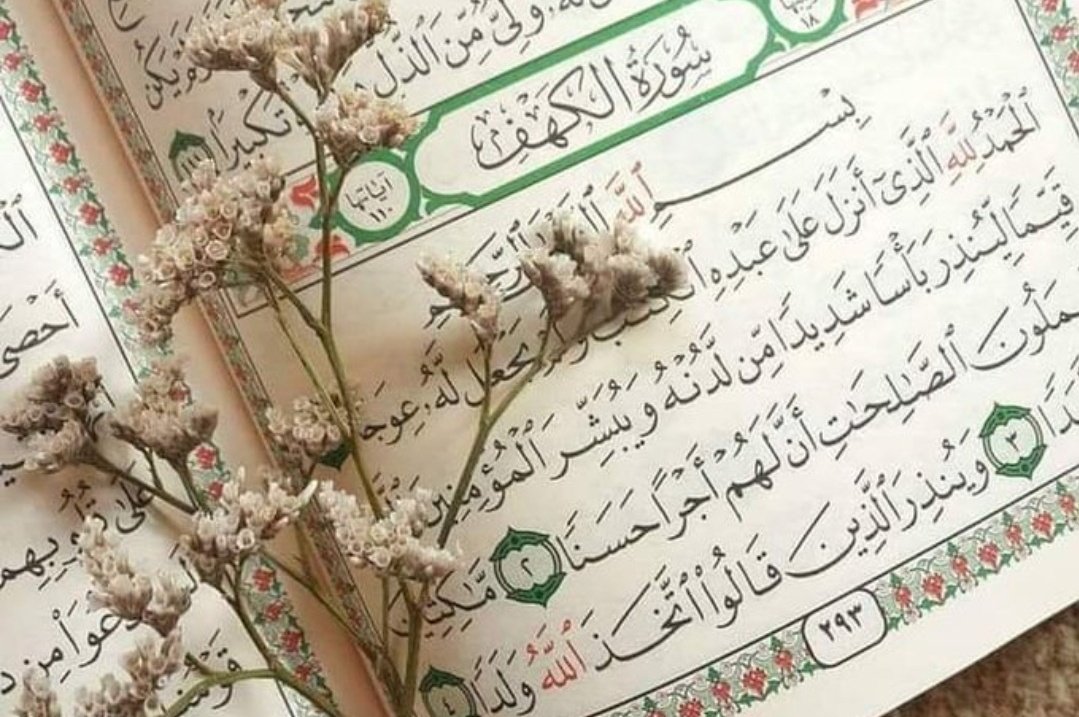 يَكُن
وَلِيٌّ مِّنَ ٱلذُّلِّ تَكْبِيرًا ١١١
سُورَةُ الكَهْفِ
آيَاتُهَا ١١٠
١٨
بِسْمِ ٱللَّهِ ٱلرَّحِيمِ
ٱلْحَمْدُ لِلَّهِ ٱلَّذِىٓ أَنزَلَ عَلَىٰ عَبْدِهِ ٱلْكِتَٰبَ وَلَمْ يَجْعَل لَّهُۥ عِوَجَا
قَيِّمًا لِّيُنذِرَ بَأْسًا شَدِيدًا مِّن لَّدُنْهُ وَيُبَشِّرَ ٱلْمُؤْمِنِينَ
يَعْمَلُونَ ٱلصَّٰلِحَٰتِ أَنَّ لَهُمْ أَجْرًا حَسَنًا ٢ مَّٰكِثِينَ
٣ وَيُنذِرَ ٱلَّذِينَ قَالُوا۟ ٱتَّخَذَ ٱللَّهُ وَلَدًا ٤
٢٩٣
أَحْصَىٰ
عَلَىٰ قُلُوبِهِمْ
مِن